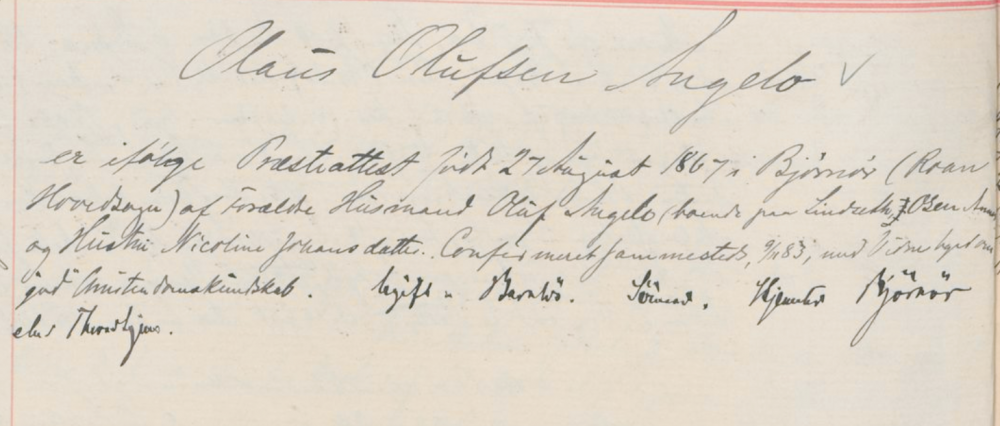 Olaus Olufsen Angelo
er ifølge Præsteattest født 27 August 1867 i Bjørnør (Roan
Hovedsogn) af Forældre Husmand Oluf Angelo (boende paa Osen
og Hustru Nicoline Johansdatter. Confirmeret sammesteds, 83, med Vidnesbyrd om
god Christendomskundskab. Ugift – Barnløs. Sömand. Hjemsted Bjørnør
eller Throndhjem.